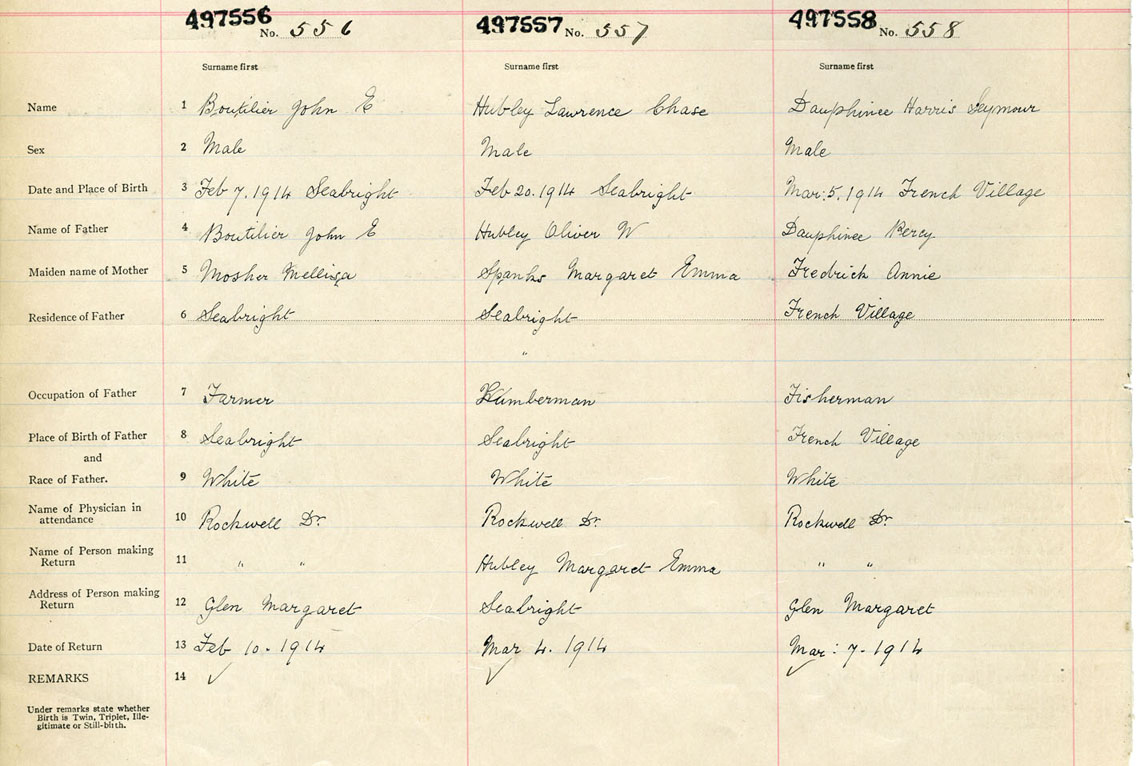 497556 No. 556 497557 No. 557 497558 No. 558
Surname first Surname first Surname first
Name 1 Boutilier John E Hubley Lawrence Chase Dauphinee Harris Seymour
Sex 2 Male Male Male
Date and Place of Birth 3 Feb 7. 1914 Seabright Feb 20. 1914 Seabright Mar: 5. 1914 French Village
Name of Father 4 Boutilier John E Hubley Oliver W Dauphinee Percy
Maiden name of Mother 5 Mosher Mellissa Spanks Margaret Emma Fredrick Annie
Residence of Father 6 Seabright Seabright French Village
"
Occupation of Father 7 Farmer Lumberman Fisherman
Place of Birth of Father 8 Seabright Seabright French Village
and
Race of Father. 9 White White White
Name of Physician in
attendance 10 Rockwell Dr. Rockwell Dr. Rockwell Dr.
Name of Person making
Return 11 " " Hubley Margaret Emma " "
Address of Person making
Return 12 Glen Margaret Seabright Glen Margaret
Date of Return 13 Feb 10. 1914 Mar 4. 1914 Mar: 7. 1914
REMARKS 14 ✓ ✓ ✓
Under remarks state whether
Birth is Twin, Triplet, Ille-
gitimate or Still-birth.